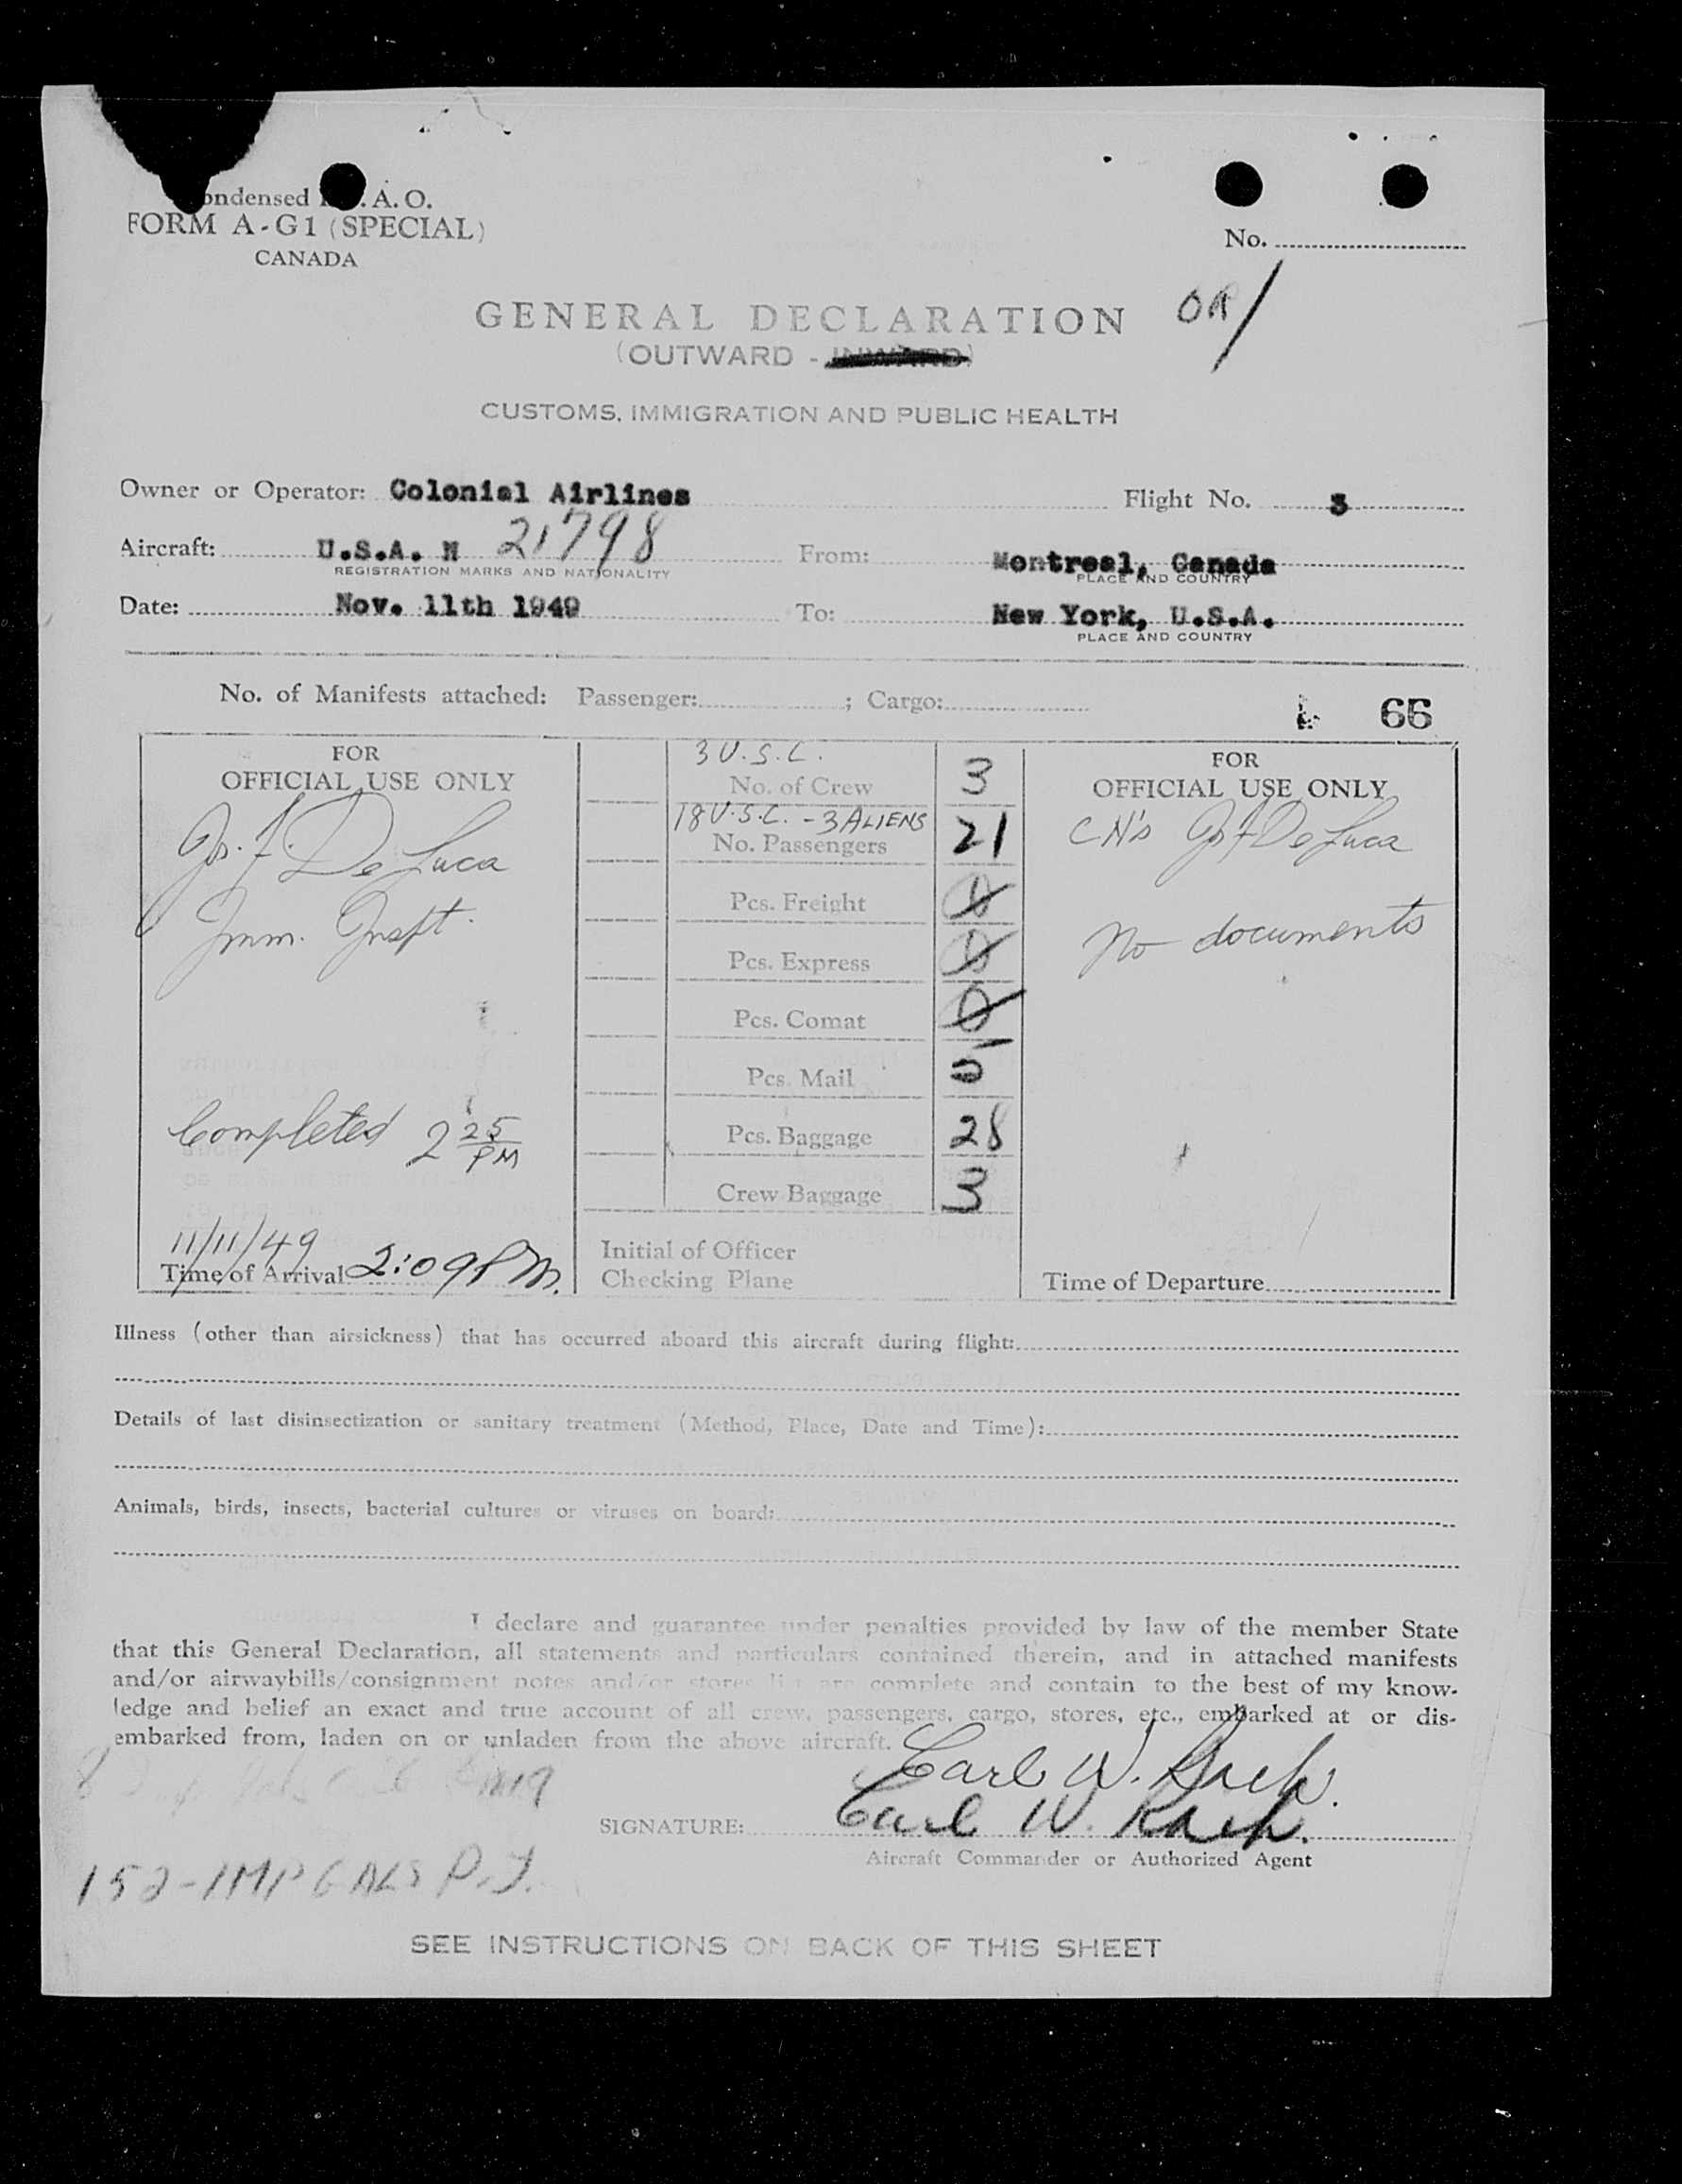 ondensed I. .A.O.
FORM A-G1 (SPECIAL)
CANADA
No.
GENERAL DECLARATION
(OUTWARD - INWARD)
CUSTOMS, IMMIGRATION AND PUBLIC HEALTH
Owner or Operator: Colonial Airlines Flight No. 3
Aircraft: U.S.A. N 21798 From: Montreal, Canada
REGISTRATION MARKS AND NATIONALITY PLACE AND COUNTRY
Date: Nov. 11th 1949 To: New York, U.S.A.
PLACE AND COUNTRY
No. of Manifests attached: Passenger: ; Cargo:
66
FOR
OFFICIAL USE ONLY
De Luca
Imm. Inspt.
Completed 2 25 PM
11/11/49
Time of Arrival 2:09 PM.
3 U.S.C.
No. of Crew 3
18 U.S.C. - 3 ALIENS
No. Passengers 21
Pcs. Freight 0
Pcs. Express 0
Pcs. Comat 0
Pcs. Mail 5
Pcs. Baggage 28
Crew Baggage 3
Initial of Officer
Checking Plane
FOR
OFFICIAL USE ONLY
De Luca
No documents
Time of Departure
Illness (other than airsickness) that has occurred aboard this aircraft during flight:
Details of last disinsectization or sanitary treatment (Method, Place, Date and Time):
Animals, birds, insects, bacterial cultures or viruses on board:
I declare and guarantee under penalties provided by law of the member State
that this General Declaration, all statements and particulars contained therein, and in attached manifests
and/or airwaybills/consignment notes and/or stores list are complete and contain to the best of my know-
ledge and belief an exact and true account of all crew, passengers, cargo, stores, etc., embarked at or dis-
embarked from, laden on or unladen from the above aircraft.
Carl W.
SIGNATURE: Carl W.
Aircraft Commander or Authorized Agent
SEE INSTRUCTIONS ON BACK OF THIS SHEET